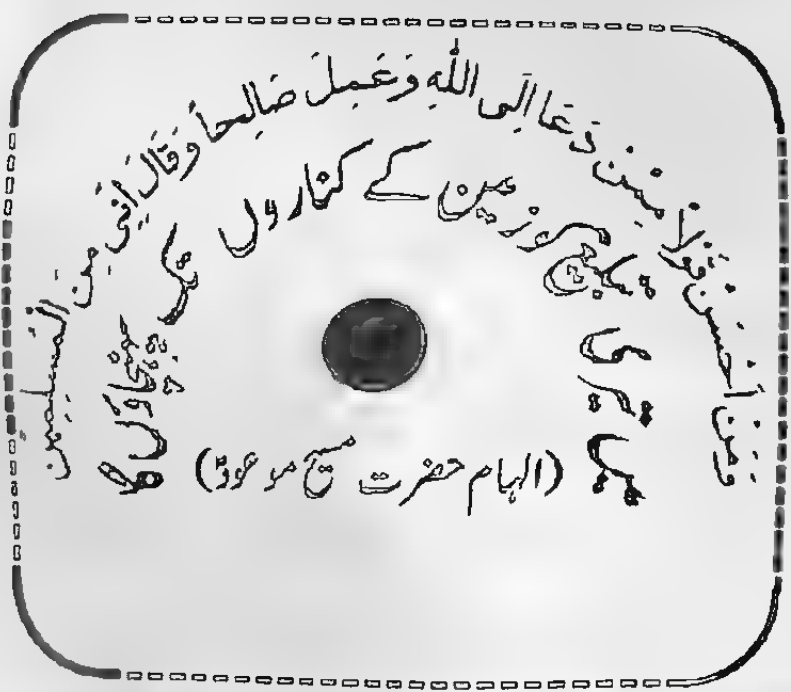 وَمَنْ اَحْسَنُ قَوْلًا مِمَّنْ دَعَا اِلَی اللّٰهِ وَعَمِلَ صَالِحاً وَّقَالَ اِنَّنِیْ مِنَ الْمُسْلِمِیْن
میں تیری تبلیغ کو زمین کے کناروں تک پہنچاؤں گا
(الہام حضرت مسیح موعودؑ)